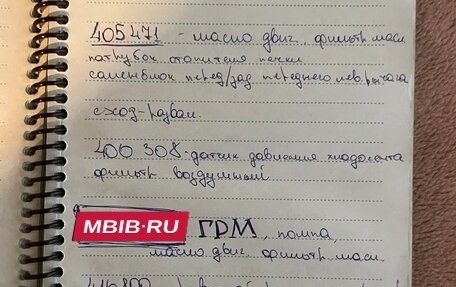 405 471 - масло двиг, фильтр масл
патрубок отопителя печки
саменблок перед/зад переднего лев. рычага
сход-развал.
400 308 - датчик давления хладогента
фильтр воздушный
MBIB.RU ГРМ, помпа,
масло двиг. фильтр масл.